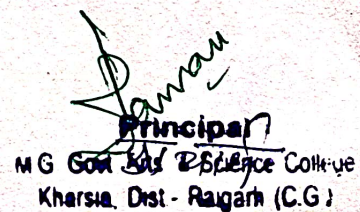 Principal
M G Govt Arts & Science College
Kharsia, Dist - Raigarh (C.G.)